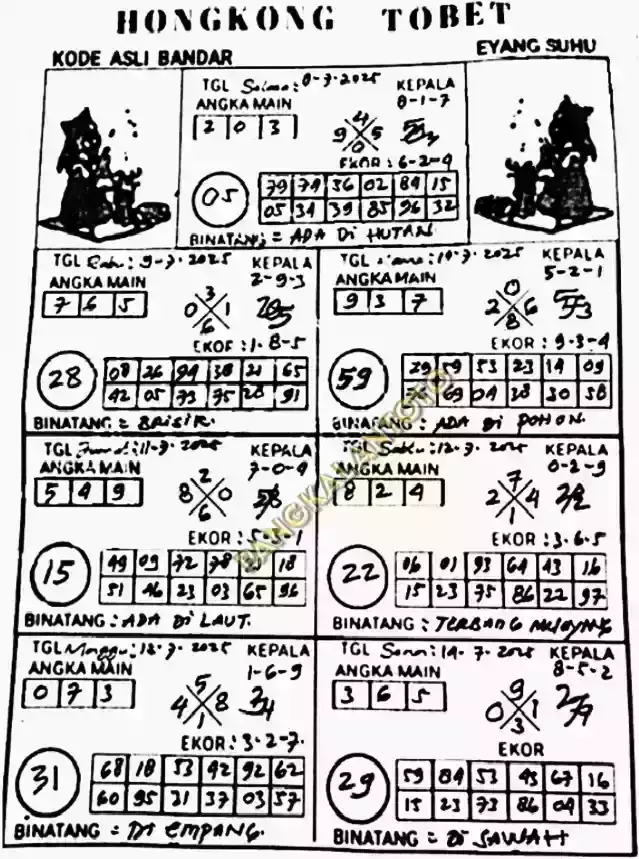 HONGKONG TOBET
KODE ASLI BANDAR
EYANG SUHU
TGL 8-7-2025
KEPALA
8-1-7
ANGKA MAIN
2 0 3
4
9 5
0
EKOR : 6-2-4
05
79 74 36 02 84 15
05 34 39 85 96 32
BINATANG = ADA Di HUTAN
TGL Rabu : 9-7-2025
KEPALA
2-9-3
ANGKA MAIN
7 6 5
3
0 1
6
EKOR : 1-8-5
28
08 26 94 38 21 65
42 05 73 75 28 91
BINATANG = BRISIK.
TGL 10-7-2025
KEPALA
5-2-1
ANGKA MAIN
9 3 7
0
2 6
8
EKOR : 9-3-4
59
29 59 53 23 14 09
69 04 38 30 58
BINATANG : ADA Di POHON.
TGL Jumat : 11-7-2025
KEPALA
7-0-4
ANGKA MAIN
5 4 9
2
8 0
6
EKOR : 5-3-1
15
49 09 72 78 18
51 46 23 03 65 96
BINATANG : ADA Di LAUT.
TGL Sabtu : 12-7-2025
KEPALA
0-2-9
ANGKA MAIN
8 2 4
7
2 4
1
EKOR : 3-6-5
22
06 01 93 64 43 16
15 23 75 86 22 97
BINATANG : TERBANG
TGL Minggu : 13-7-2025
KEPALA
1-6-9
ANGKA MAIN
0 7 3
5
4 8
1
EKOR : 3-2-7.
31
68 18 53 42 92 62
60 95 31 37 03 57
BINATANG = Di EMPANG.
TGL Senin : 14-7-2025
KEPALA
8-5-2
ANGKA MAIN
3 6 5
9
0 1
3
EKOR
29
59 84 53 45 67 16
15 23 73 86 04 33
BINATANG = Di SAWAH
PANGKALANTOTO